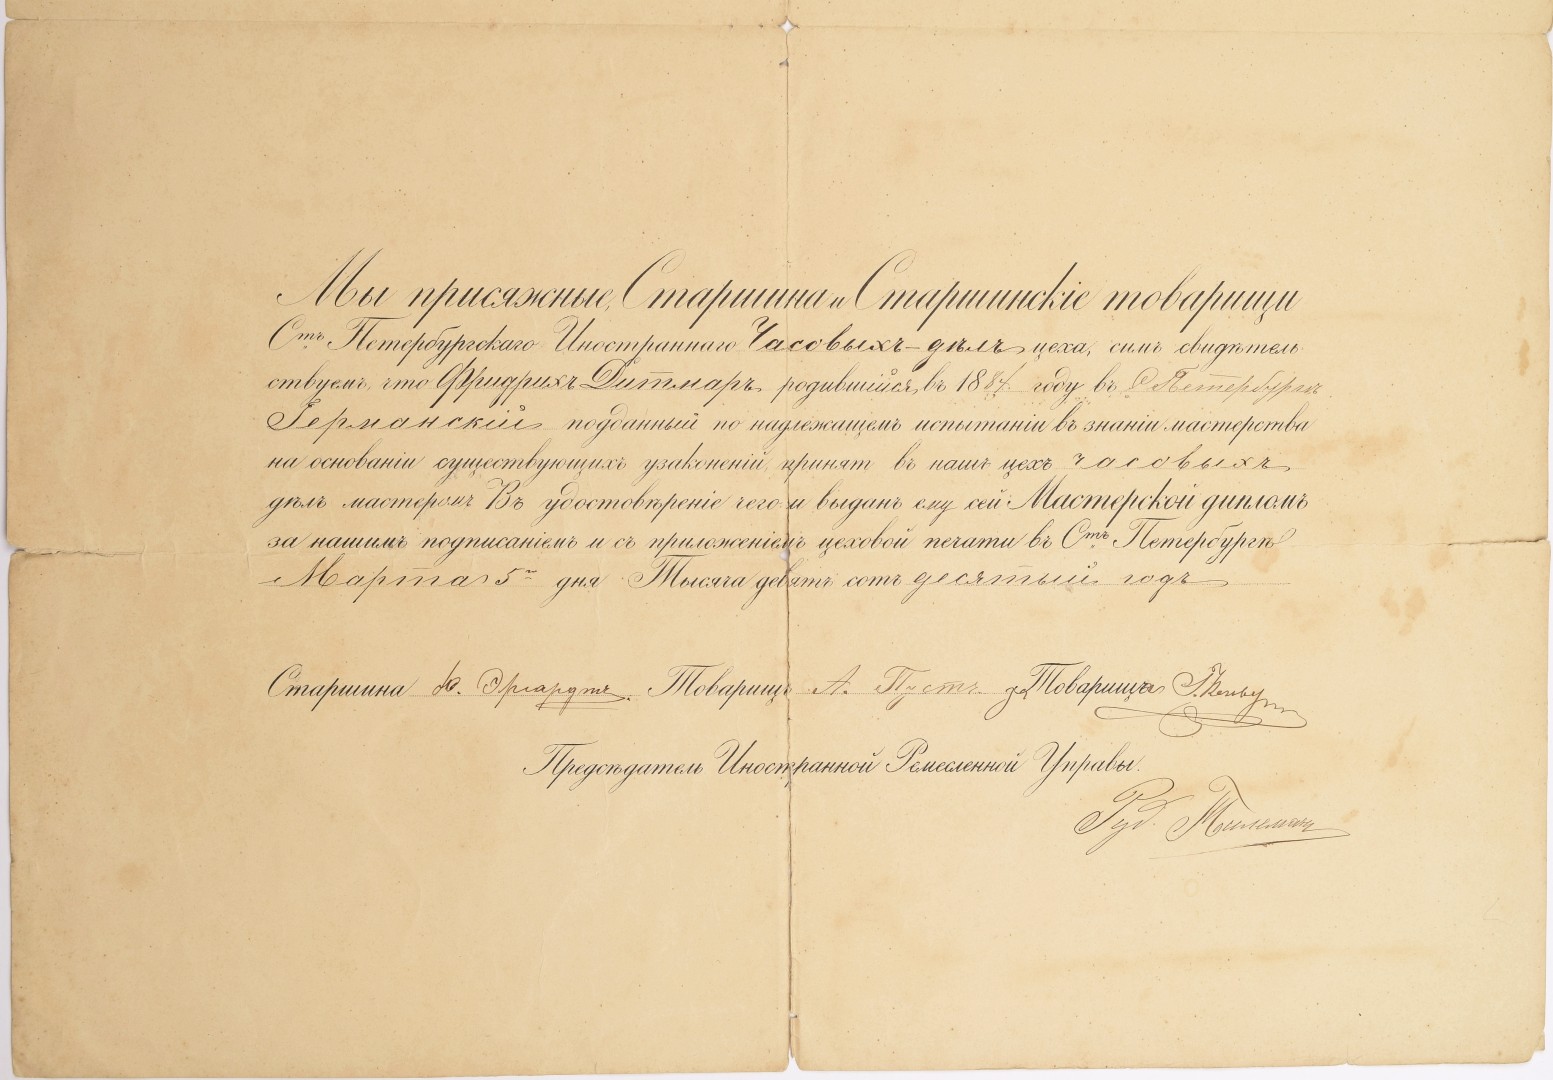 Мы присяжные, Старшина и Старшинскіе товарищи
Стъ Петербургскаго Иностраннаго Часовыхъ-дѣлъ цеха, симъ свидѣтель-
ствуемъ, что Фридрихъ Дитмаръ родившійся, въ 1884 году въ С Петербургѣ
Германскій подданный по надлежащемъ испытаніи въ знаніи мастерства
на основаніи существующихъ узаконеній, принят въ нашъ цехъ часовыхъ
дѣлъ мастеромъ Въ удостовѣреніе чего и выданъ ему сей Мастерской дипломъ
за нашимъ подписаніемъ и съ приложеніемъ цеховой печати въ Стъ Петербургѣ
Марта 5го дня Тысяча девять сотъ десятый годъ
Старшина Эргардтъ. Товарищъ А. Пустъ за Товарища
Предсѣдатель Иностранной Ремесленной Управы.
Руд. Тилеманъ